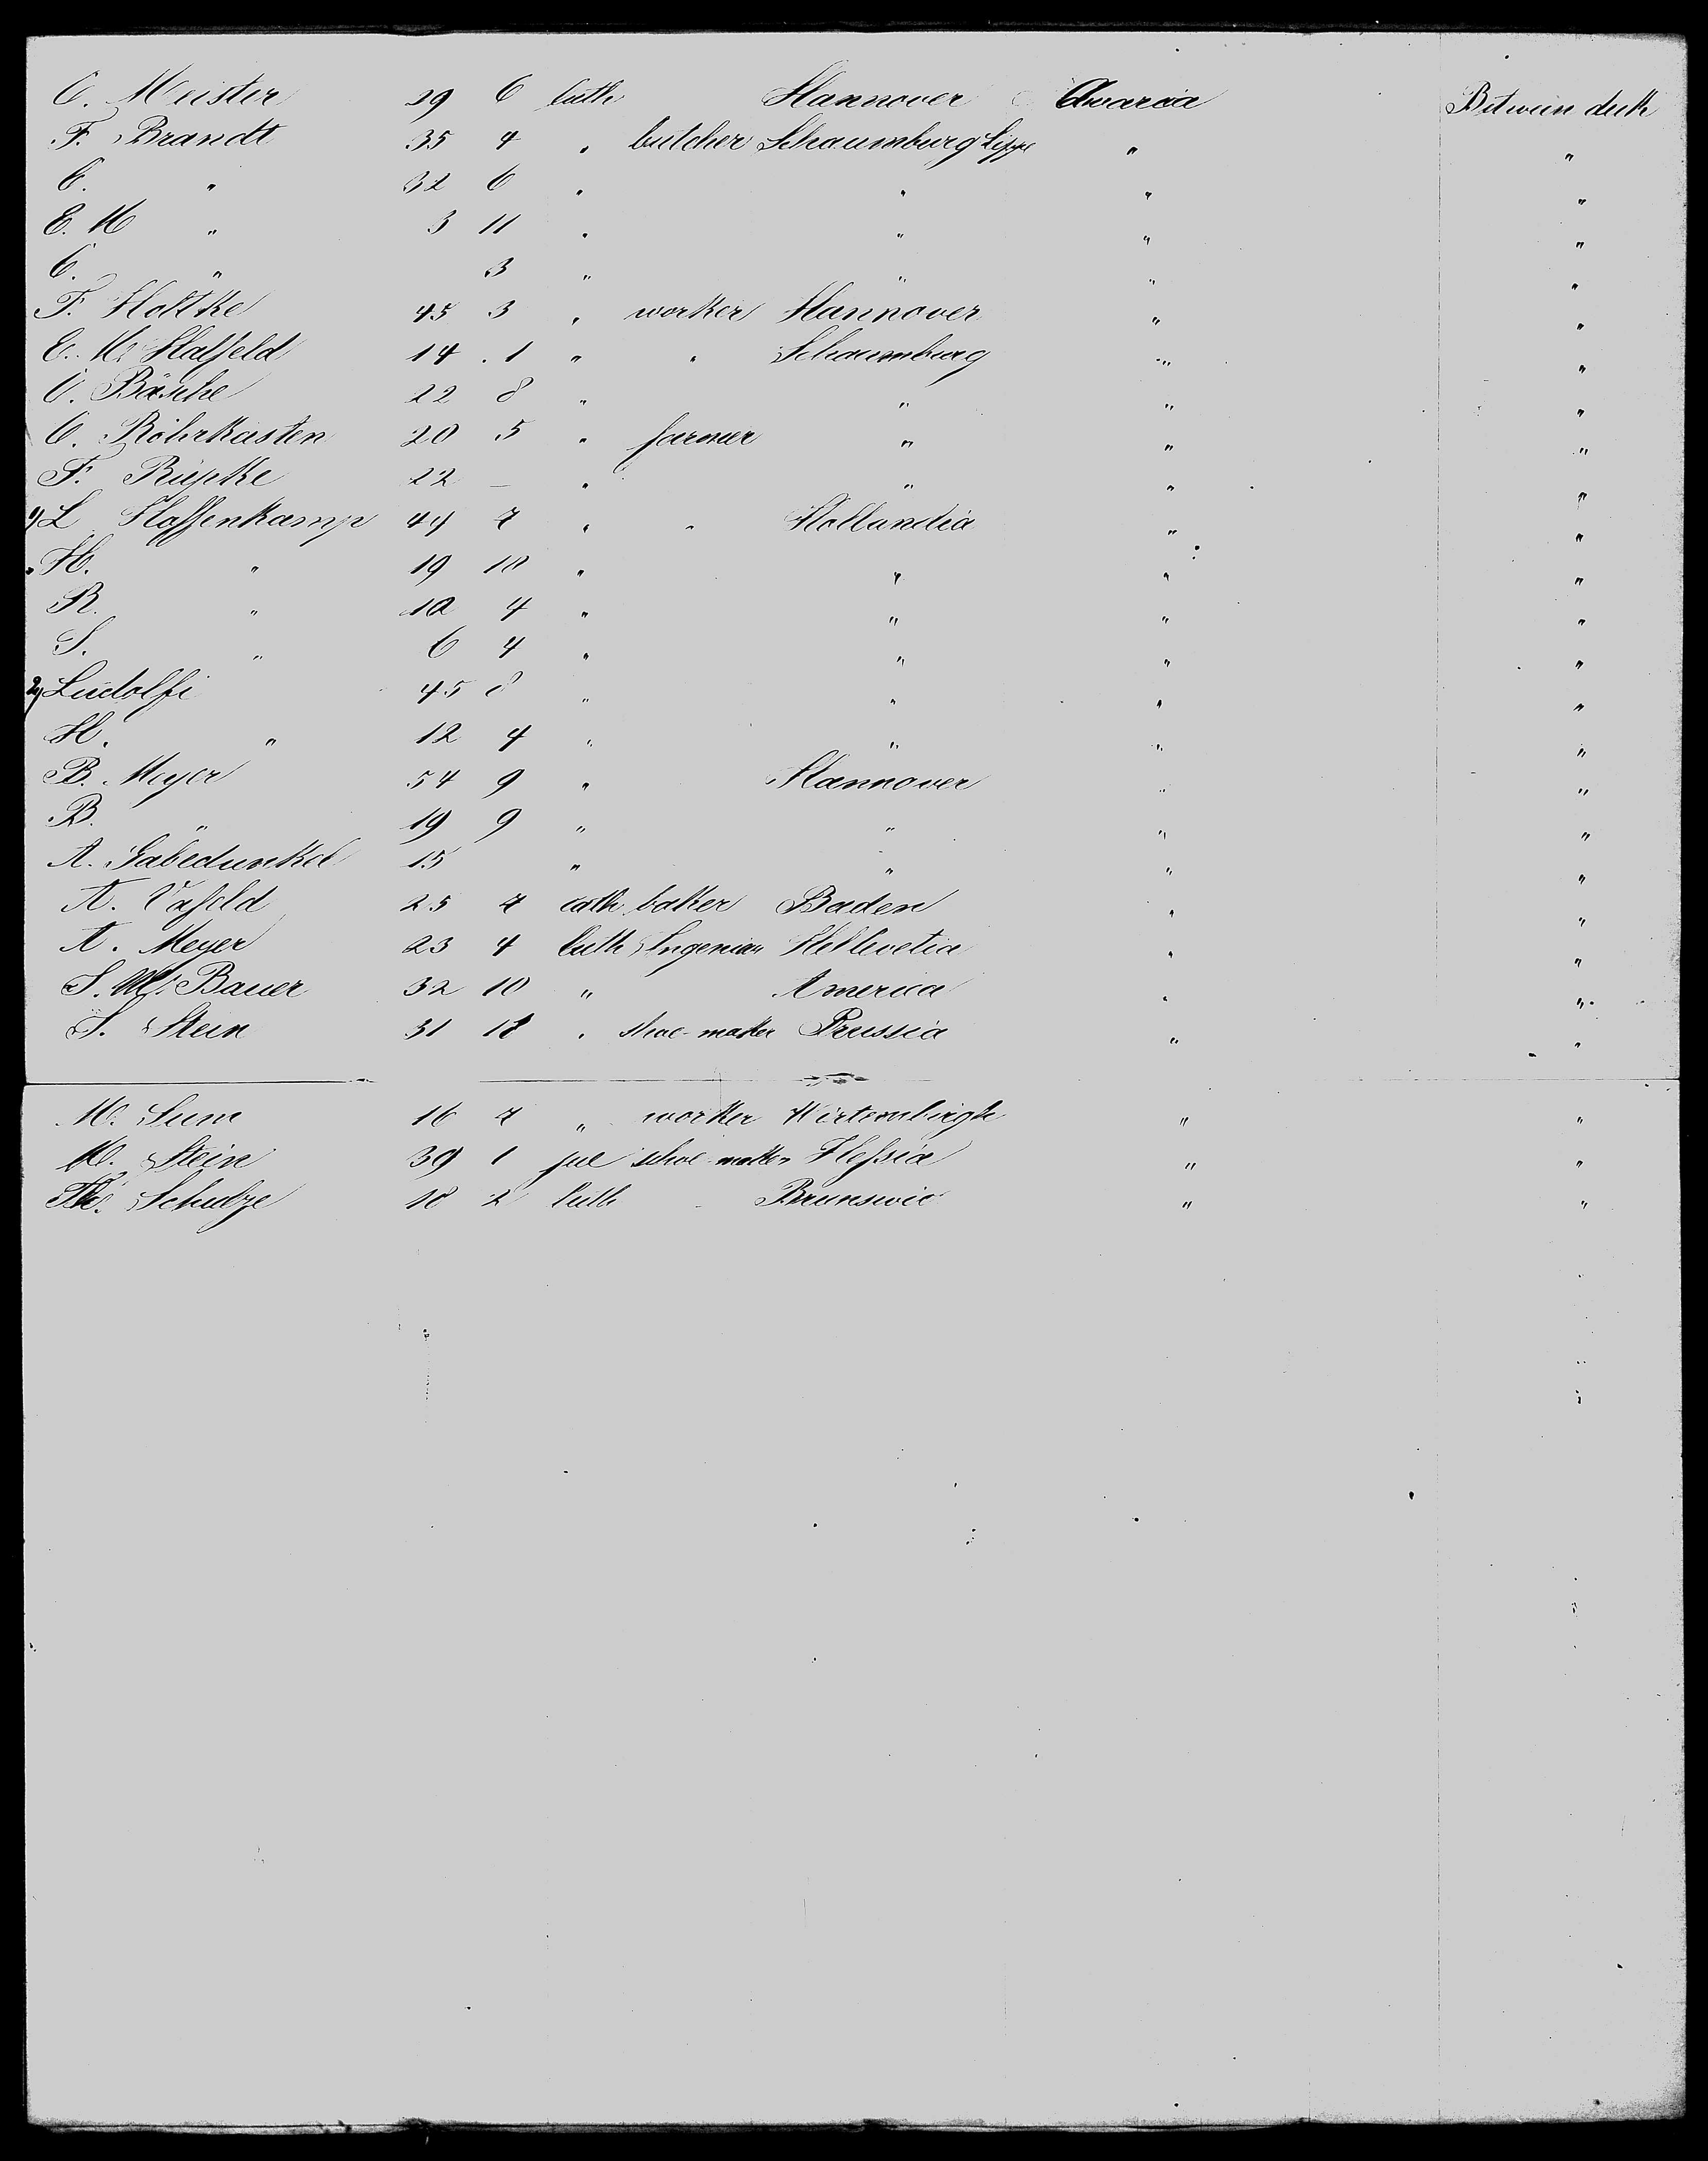 C. Meister 29 6 luth Hannover America Between deck
F. Brandt 35 4 " butcher Schaumburg Lippe " "
C. " 32 6 " " " "
E. M " 3 11 " " " "
C. " 3 " " " "
F. Holtke 45 3 " worker Hannover " "
E. M. Halfeld 14 1 " " Schaumburg " "
C. Bäsche 22 8 " " " "
C. Röhrkasten 20 5 " farmer " " "
F. Ripke 22 — " " " "
1) L Haffenkamp 44 7 " " Hollandia " "
H. " 19 10 " " " "
R. " 10 4 " " " "
S. " 6 4 " " " "
2) Ludolfi 45 8 " " " "
H. " 12 4 " " " "
B. Meyer 54 9 " Hannover " "
B. " 19 9 " " " "
A. Gabedunkel 15 " " " "
A. Vafeld 25 7 cath baker Baden " "
A. Meyer 23 4 luth Ingenieur Hellvetia " "
S. M. Bauer 32 10 " America " "
S. Stein 31 " shoe-maker Prussia " "
M. Sum 16 7 " worker Wirtembirgh " "
M. Stein 39 1 jue schoe-maker Hessia " "
Th. Schulze 18 2 luth Brunswic " "